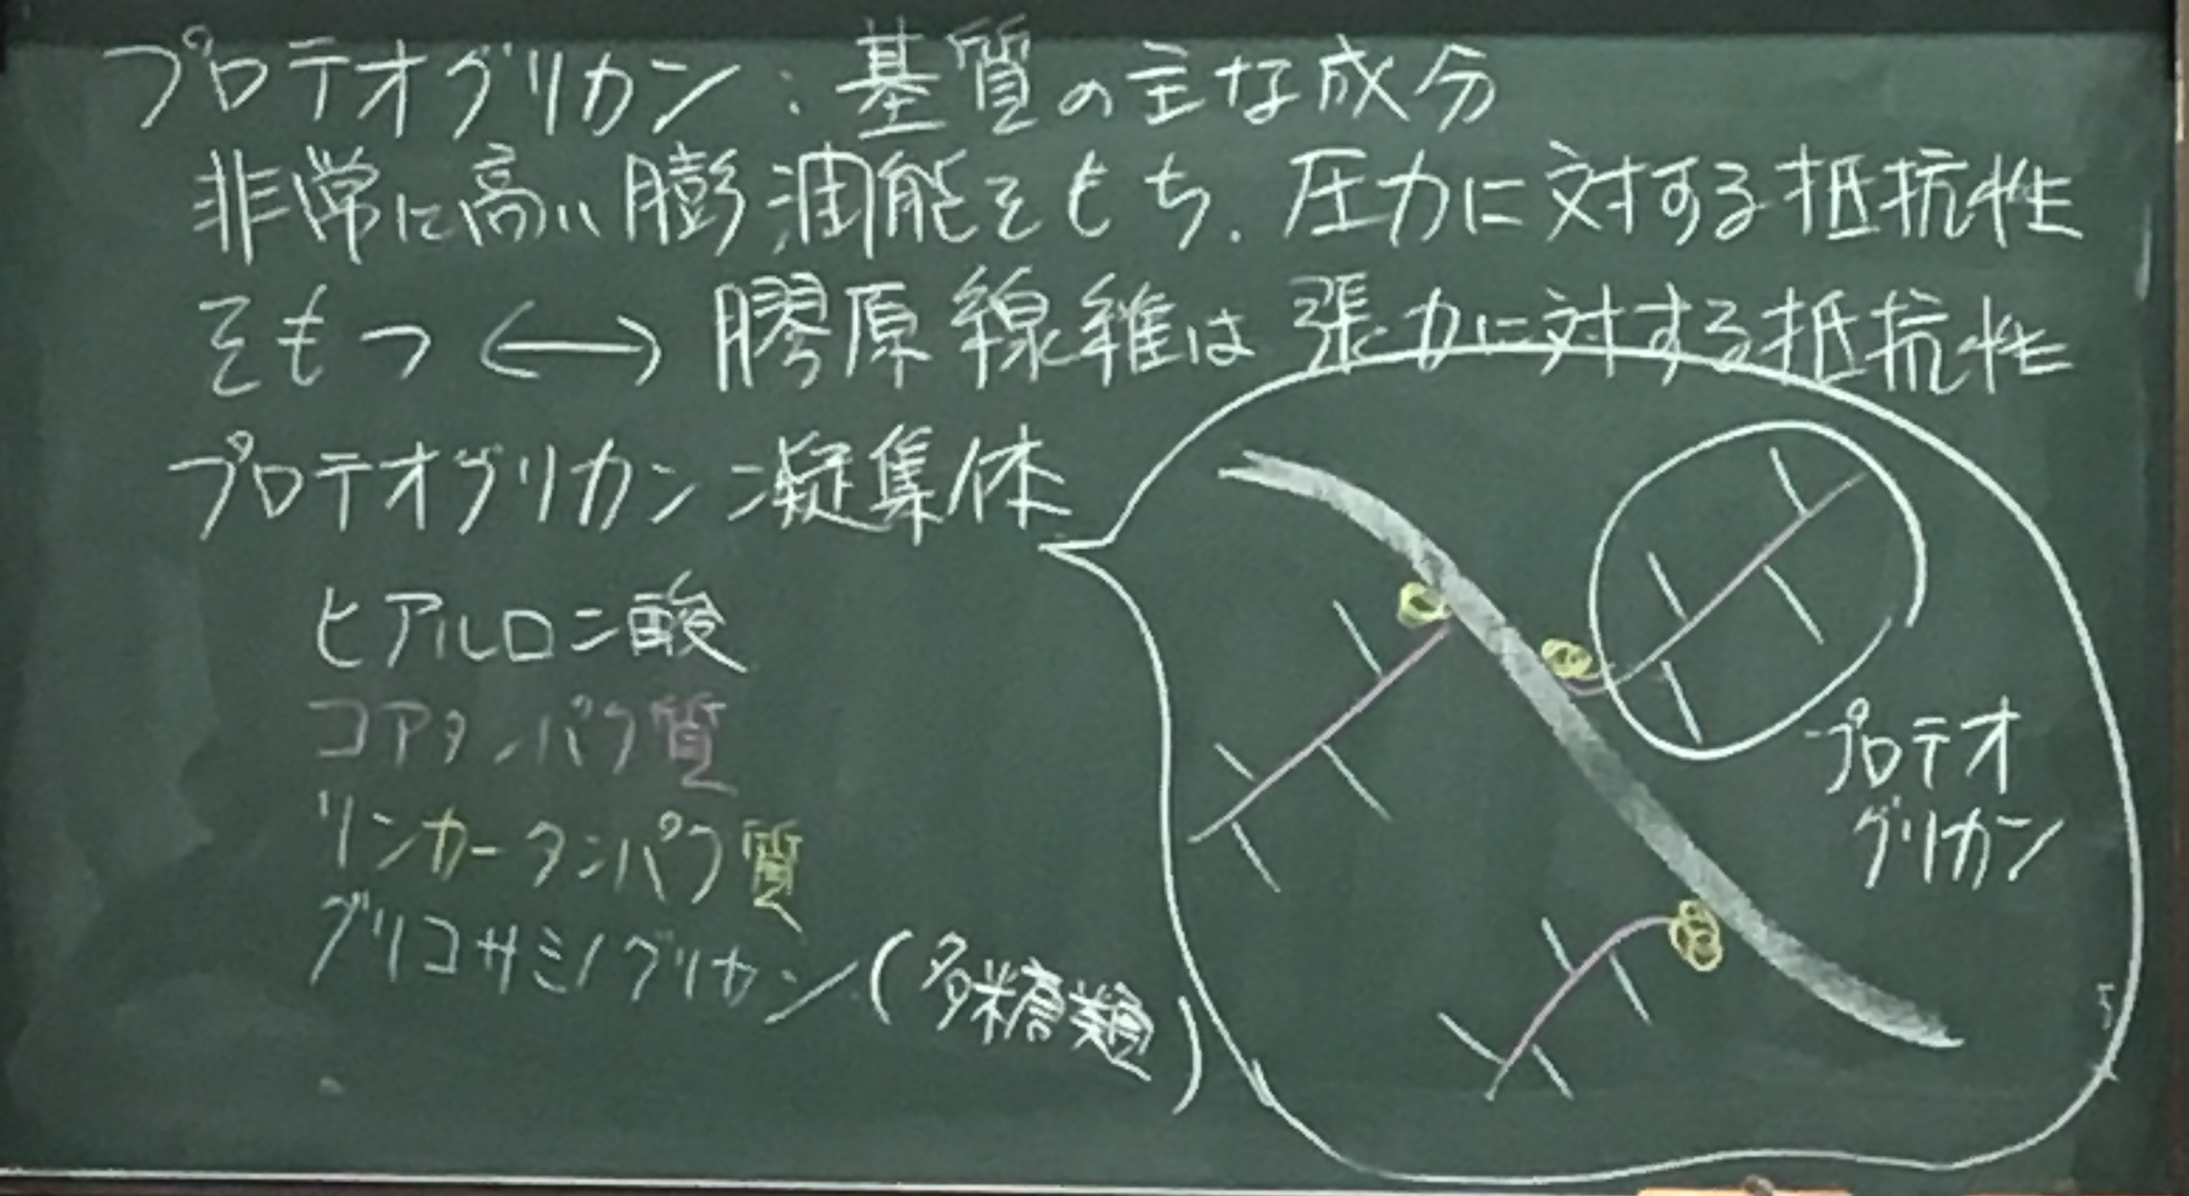 プロテオグリカン：基質の主な成分
非常に高い膨潤能をもち．圧力に対する抵抗性
をもつ ⟷ 膠原線維は張力に対する抵抗性
プロテオグリカン凝集体
ヒアルロン酸
コアタンパク質
リンカータンパク質
グリコサミノグリカン（多糖類）
プロテオ
グリカン